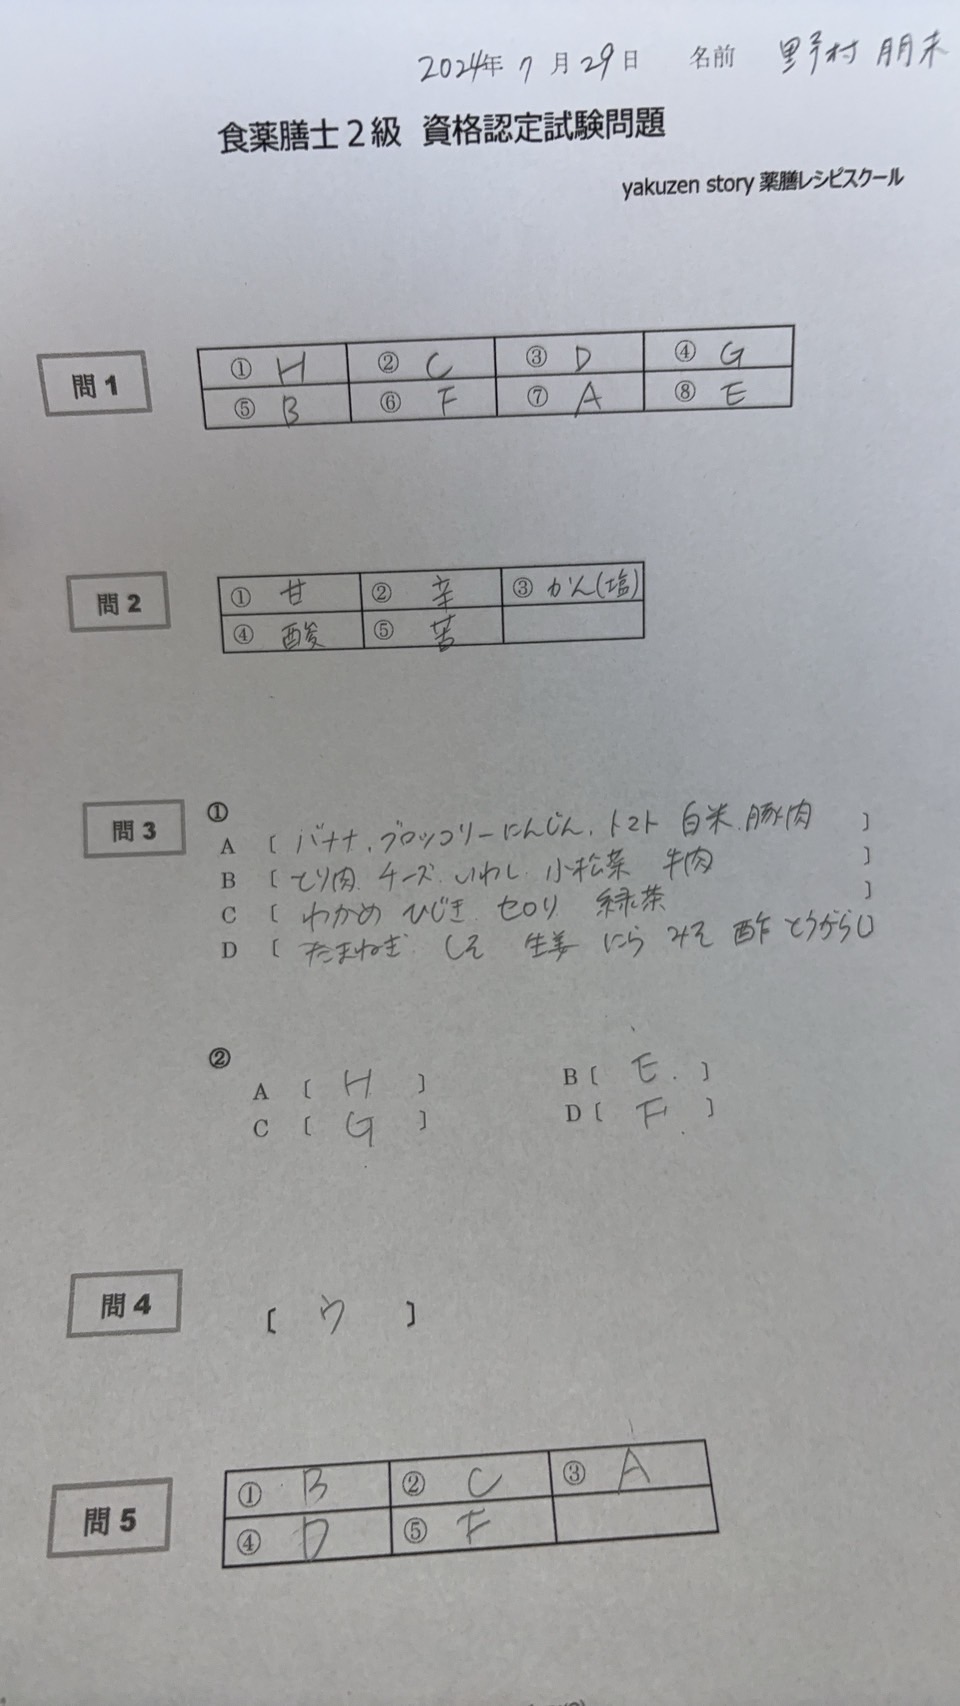 2024年 7月 29日 名前 野村 朋未
食薬膳士2級 資格認定試験問題
yakuzen story 薬膳レシピスクール
問1
① H ② C ③ D ④ G
⑤ B ⑥ F ⑦ A ⑧ E
問2
① 甘 ② 辛 ③ かん(塩)
④ 酸 ⑤ 苦
問3
①
A 〔 バナナ、ブロッコリー にんじん、トマト 白米、豚肉 〕
B 〔 とり肉、チーズ、いわし、小松菜 牛肉 〕
C 〔 わかめ ひじき セロリ 緑茶 〕
D 〔 たまねぎ しそ 生姜 にら みそ 酢 とうがらし 〕
②
A 〔 H 〕 B 〔 E 〕
C 〔 G 〕 D 〔 F 〕
問4
〔 ウ 〕
問5
① B ② C ③ A
④ D ⑤ F